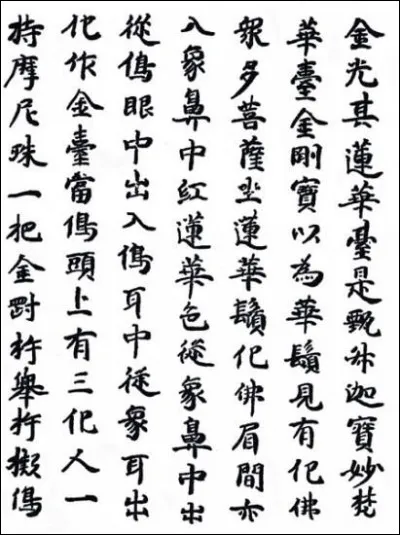 金光其蓮華臺是甄叔迦寶妙梵
華臺金剛寶以為華鬚見有化佛
衆多菩薩坐蓮華鬚化佛眉間亦
入象鼻中紅蓮華色從象鼻中出
從像眼中出入像耳中從象耳出
化作金臺當像頭上有三化人一
持摩尼珠一把金剛杵舉杵擬像